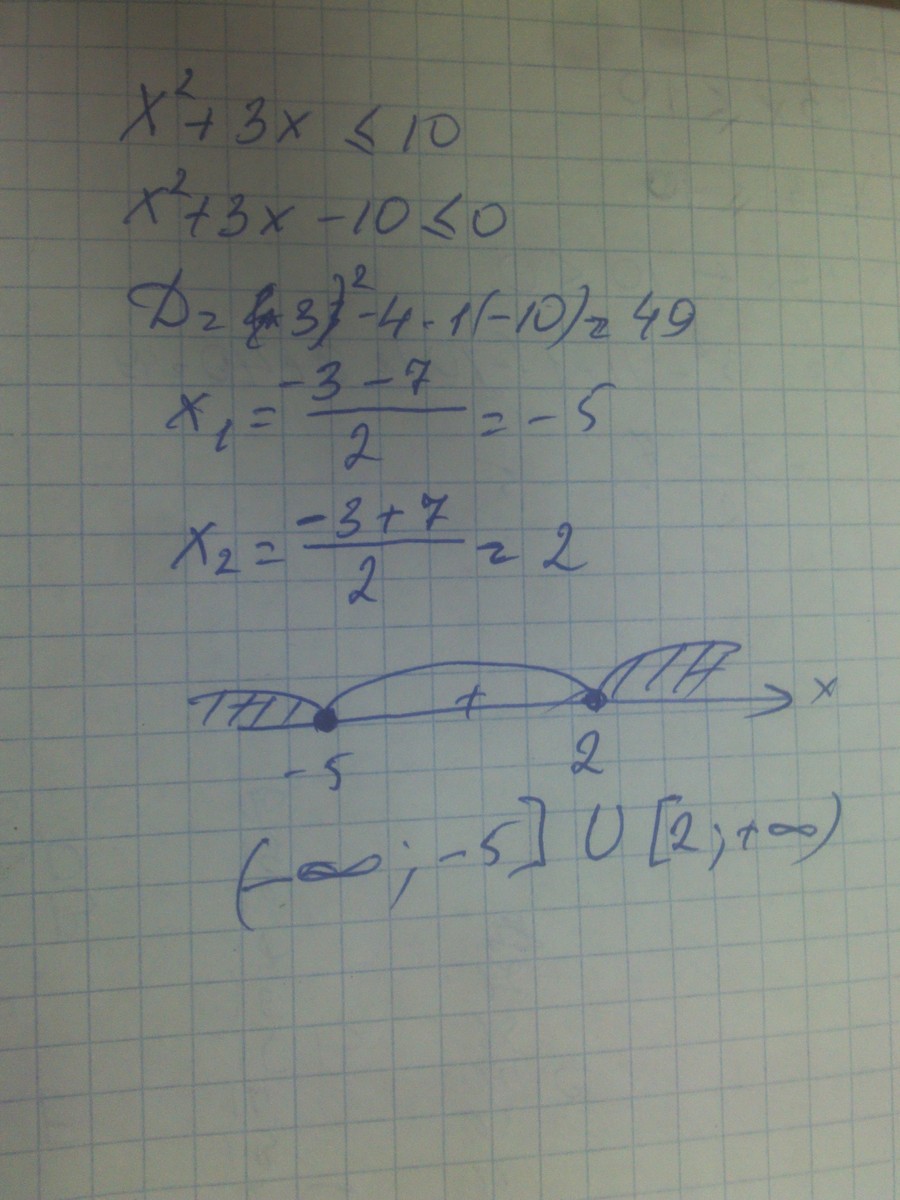 x² + 3x ≤ 10
x² + 3x - 10 ≤ 0
D = (3)² - 4 · 1(-10) = 49
x₁ = (-3 - 7)/2 = -5
x₂ = (-3 + 7)/2 = 2
+ x
-5 2
(-∞; -5] ∪ [2; +∞)